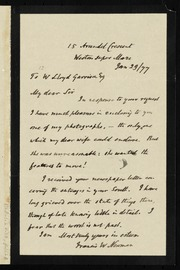 15 Arundel Crescent
Weston super Mare
Jan 29/77
To W Lloyd Garrison Esq
My dear Sir
In response to your request
I have much pleasure in enclosing to you
one of my photographs, – the only one
which my dear wife could endure. But
she was unreasonable: she wanted the
features to move!
I received your newspaper letter con-
cerning the outrages in your South. I have
long grieved over the state of things there
though of late knowing little in detail. I
fear that the worst is not past.
I am Most truly yours in esteem
Francis W. Newman